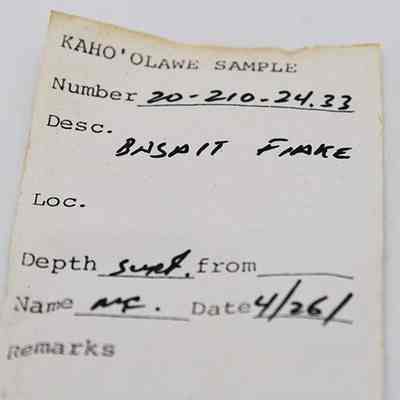 KAHO'OLAWE SAMPLE
Number 20-210-24.33
Desc.
BASALT FLAKE
Loc.
Depth surf. from
Name MC. Date 4/26/
Remarks